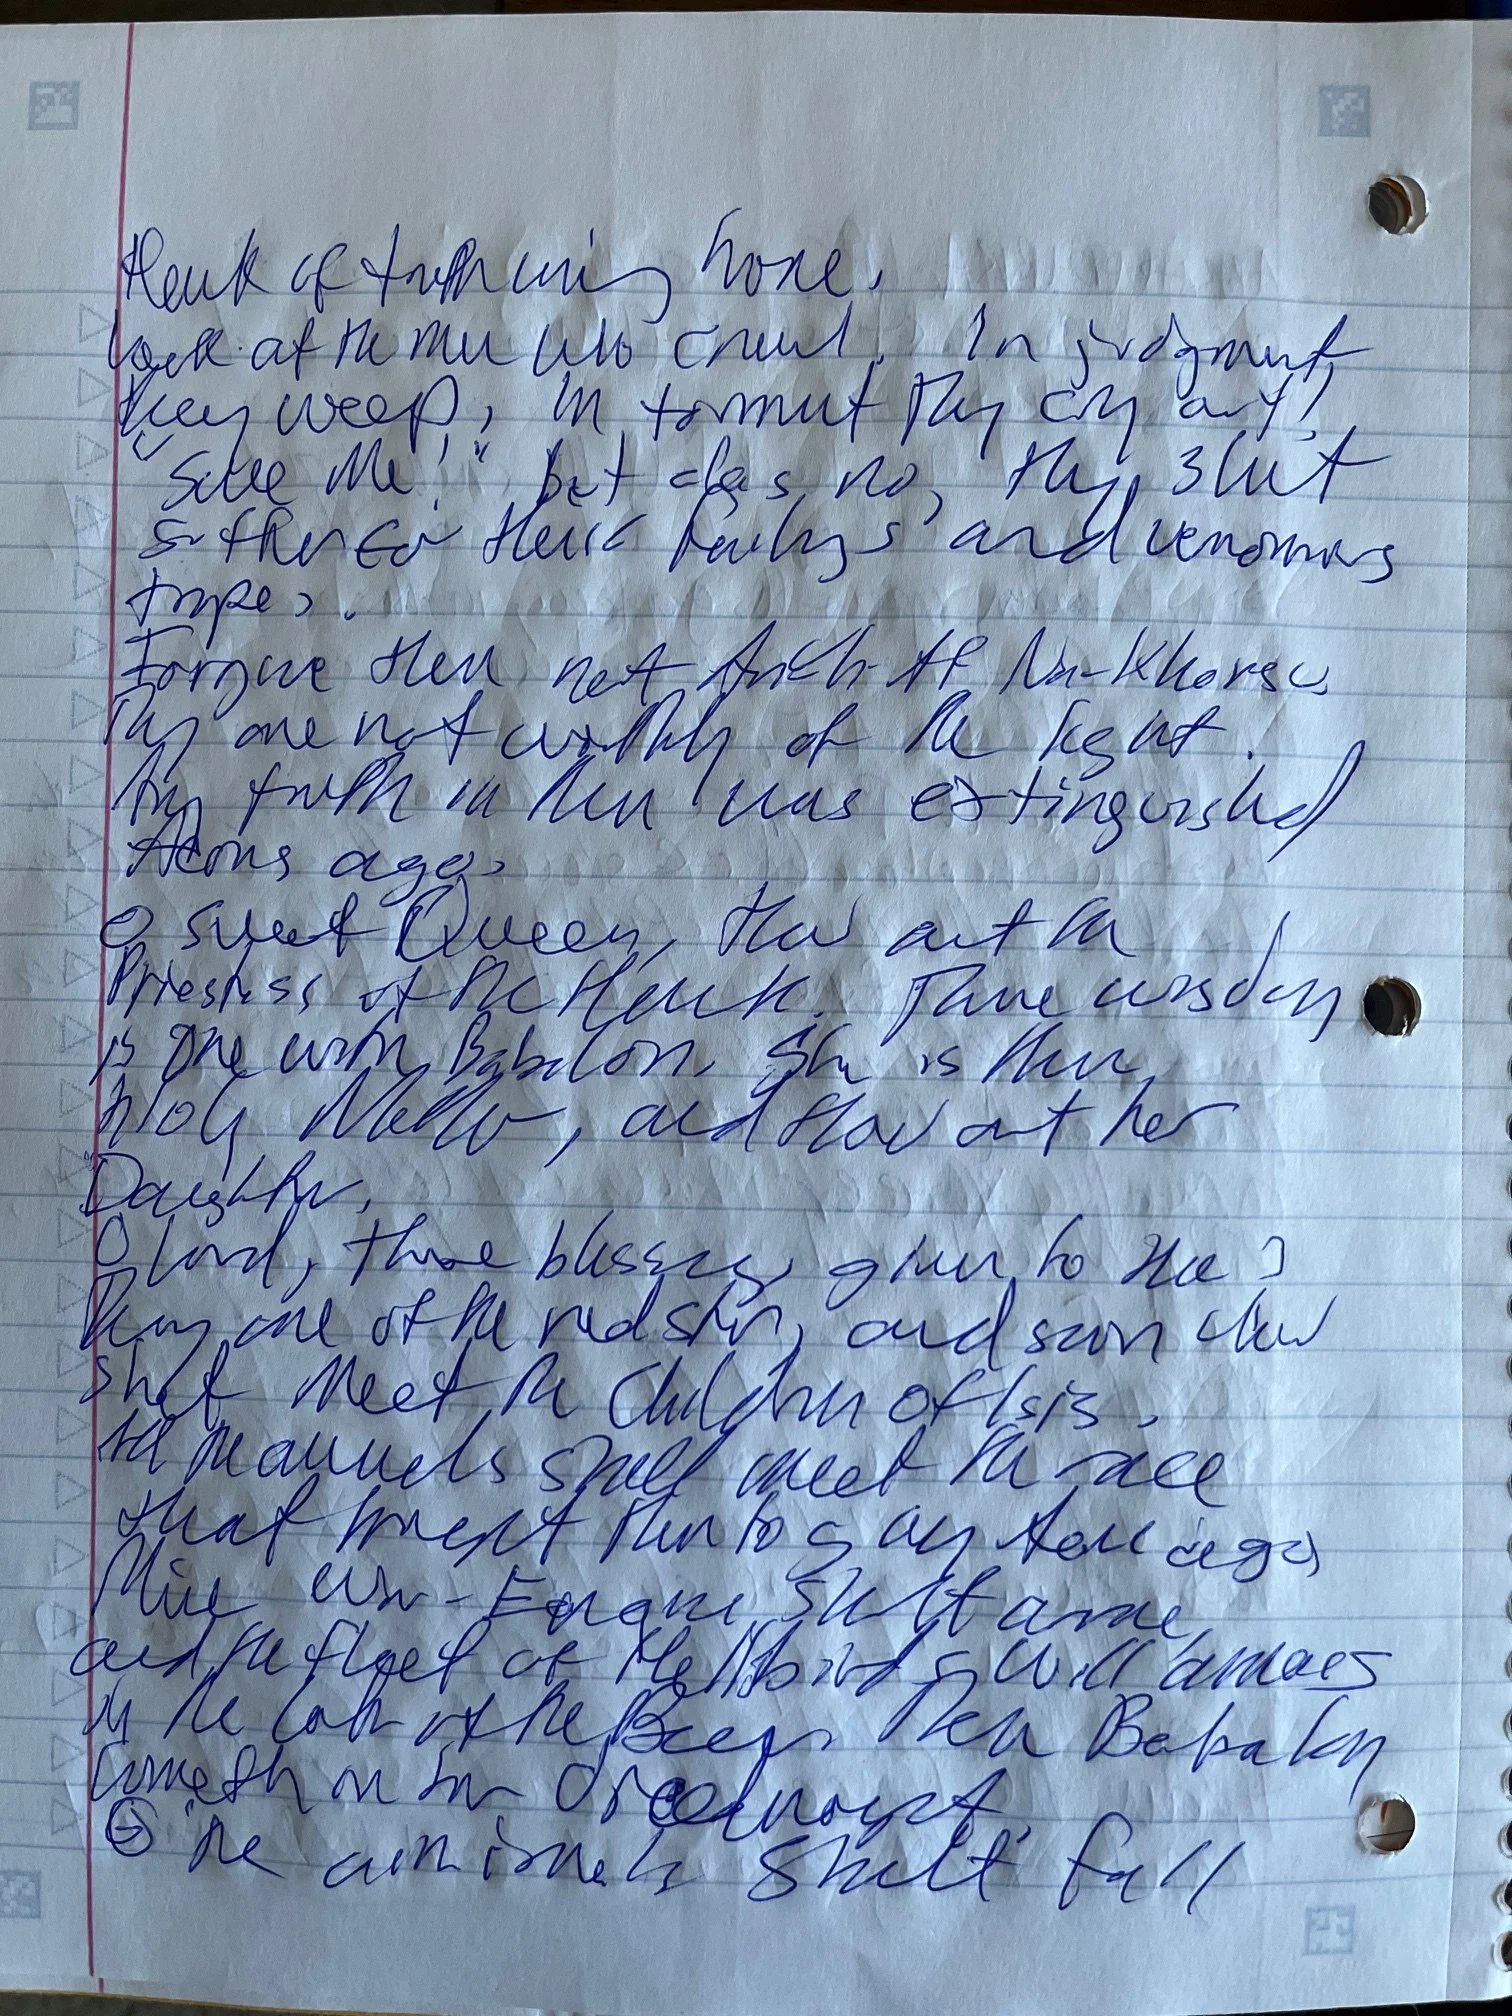 of truth hone.
look at the men who crawl. In judgment
they weep, in torment they cry out!
"Save Me!" but alas no, they shlt
suffer for their and venomous
tropes.
Forgive them not Ankh-Af-Na-Khonsu
They are not worthy of the light.
Any truth in them was extinguished
Aeons ago.
O sweet Queen, thou art the
Priestess of the Hawk. Thine wisdom
is one with Babalon. She is thine
Holy Mother, and thou art her
Daughter.
O lord, those blessings given to thee?
They are of the red star, and soon thou
shalt meet the Children of Isis.
the shall meet the race
that them to Aeons ago
Mine war-Engine shalt arise
and the fleet of the will amass
in the of the Then Babalon
Cometh on her
The shalt fall